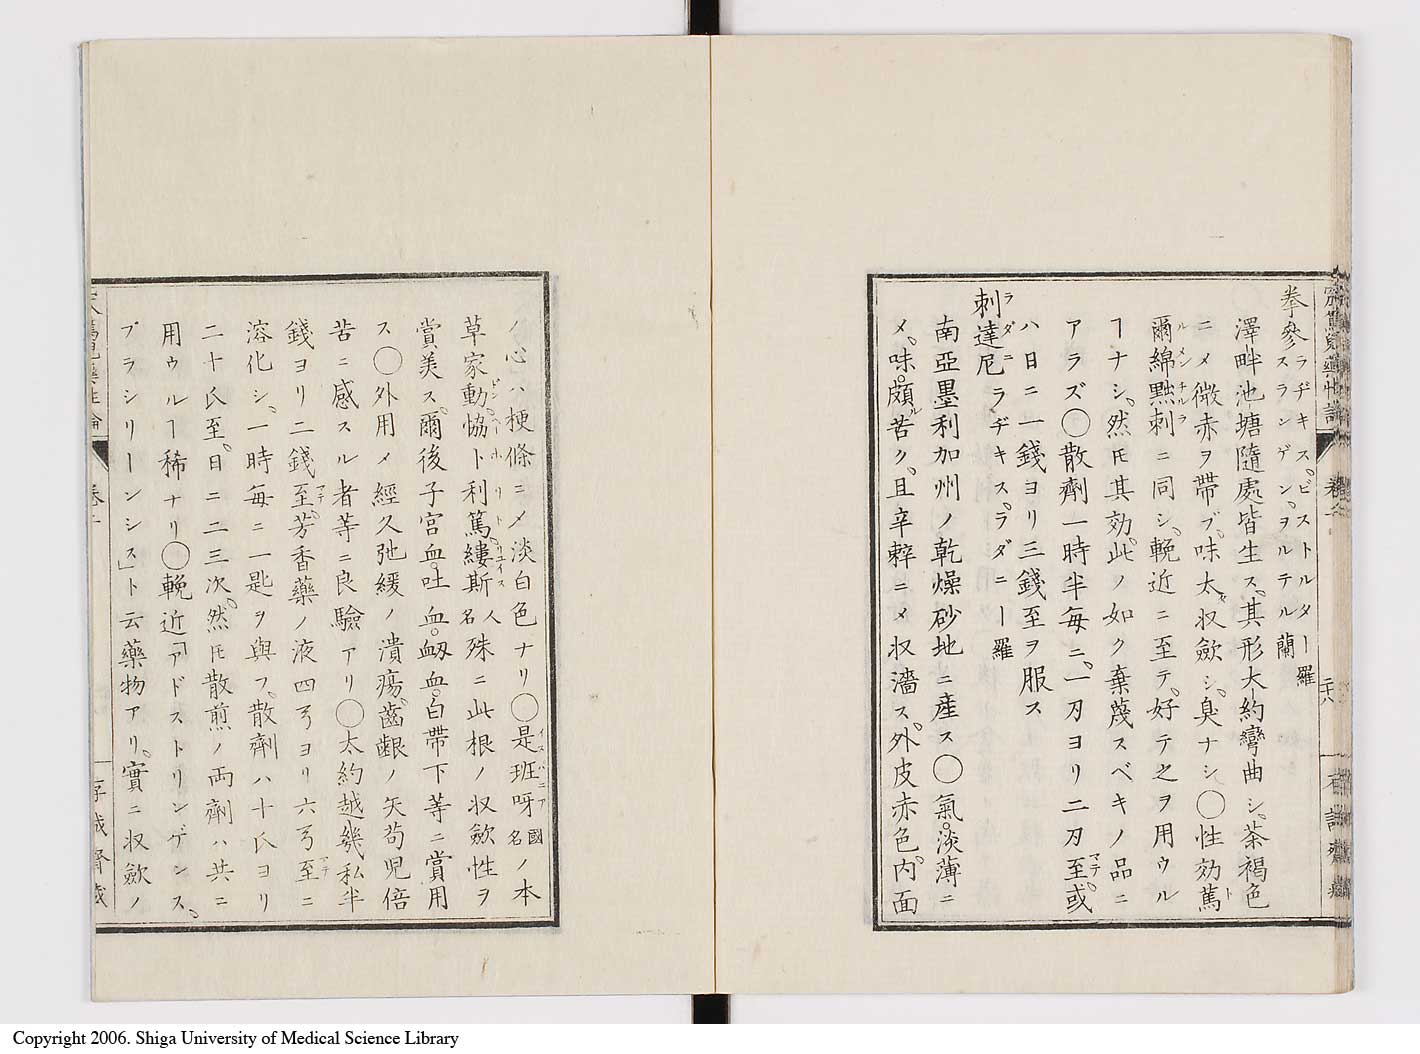 拳參ラヂキス。ビストルターー羅
スランゲン。ヲルテル蘭
澤畔池塘隨處皆生ス。其形大約彎曲シ。茶褐色
ニメ微赤ヲ帶ブ。味太タ収斂シ。臭ナシ◯性効篤
爾綿㸃刺ニ同シ。輓近ニ至テ。好テ之ヲ用ウル
ヿナシ。然㪳其効。此ノ如ク棄蔑スベキノ品ニ
アラズ◯散劑一時半每ニ。一刀ヨリ二刀至。或
ハ日ニ一錢ヨリ三錢至ヲ服ス
刺達尼ラヂキス。ラダニー羅
南亞墨利加州ノ乾燥砂地ニ産ス◯氣。淡薄ニ
メ。味。頗ル苦ク。且辛辣ニメ収濇ス。外皮赤色。内面
ノ心ハ梗條ニメ淡白色ナリ◯是班呀國名ノ本
草家動。協ト利篤縷斯人名殊ニ此根ノ収斂性ヲ
賞美ス。爾後子宮血。吐血。衂血。白帶下等ニ賞用
ス◯外用メ經久弛緩ノ潰瘍。齒齦ノ失苟兒倍
苦ニ感スル者等ニ良驗アリ◯太約越幾私半
錢ヨリ二錢至。芳香藥ノ液四弓ヨリ六弓至ニ
溶化シ。一時每ニ一匙ヲ與フ。散劑ハ十氏ヨリ
二十氏至。日ニ二三次。然㪳散煎ノ両劑ハ共ニ
用ウルヿ稀ナリ◯輓近「アドストリンゲンス。
ブラシリーンシス」ト云藥物アリ。實ニ収斂ノ
Copyright 2006. Shiga University of Medical Science Library